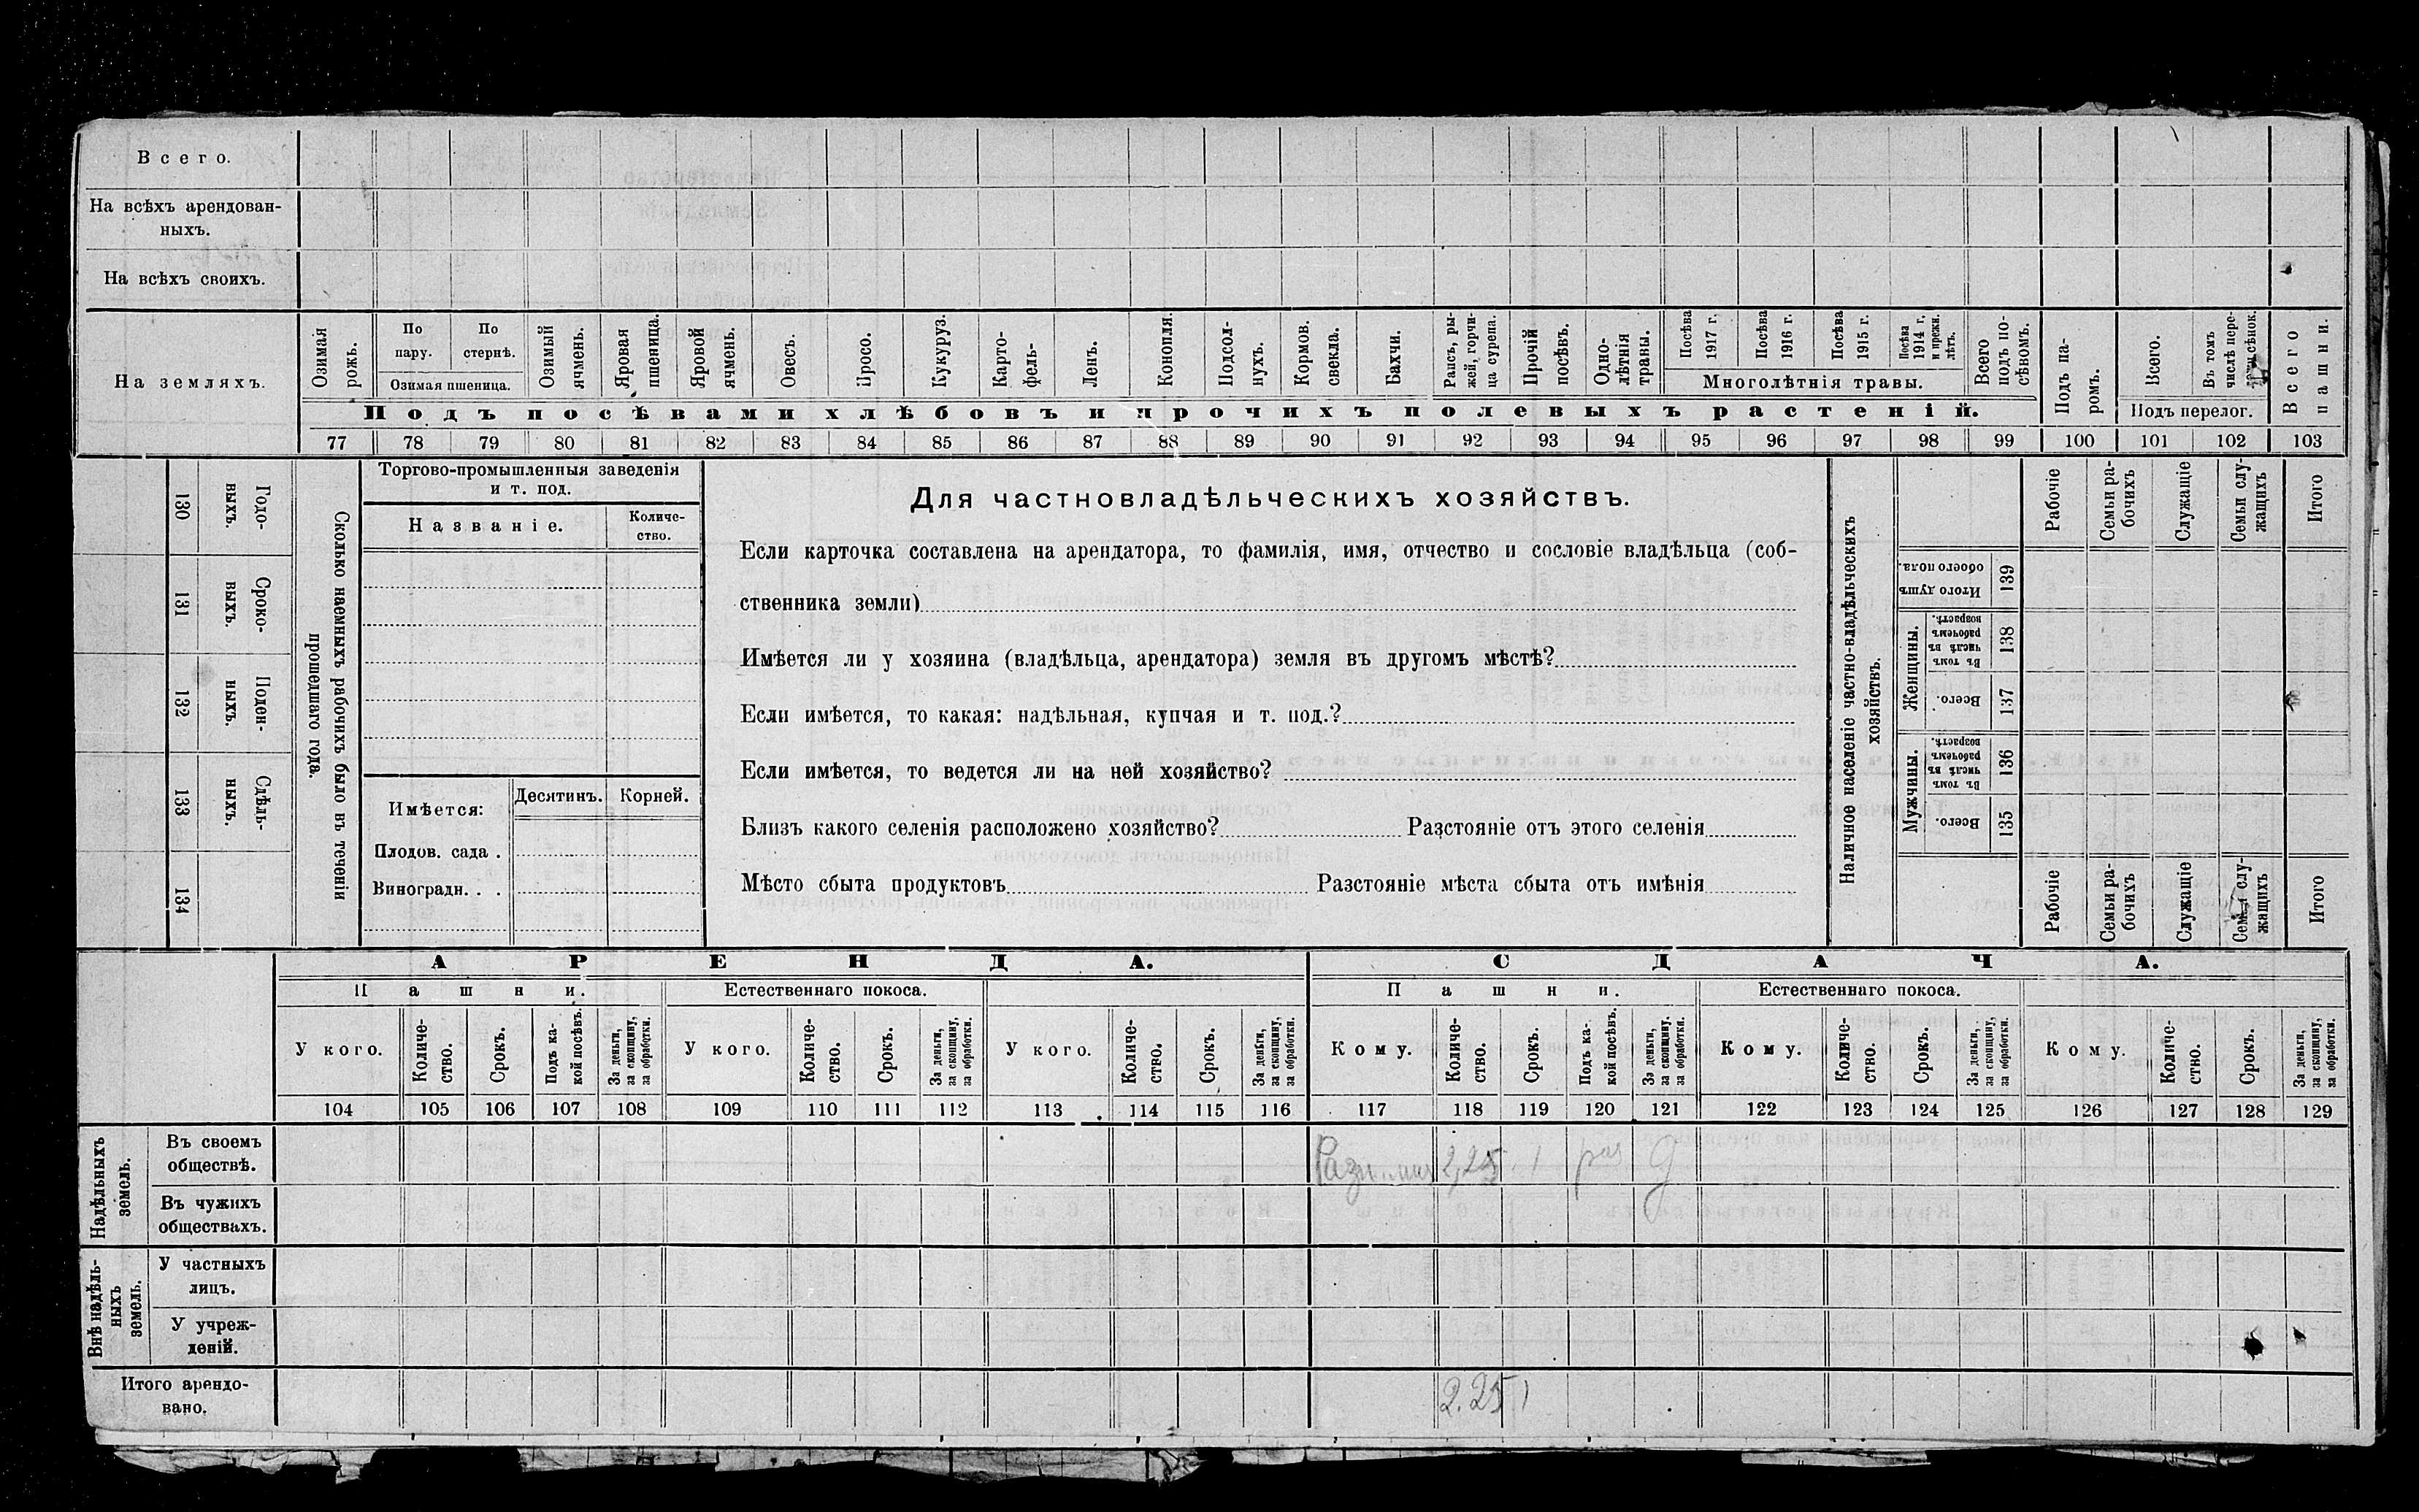 Всего.
На всѣхъ арендован-
ныхъ.
На всѣхъ своихъ.
На земляхъ.
Озимая рожь.
По пару.
По стернѣ.
Озимая пшеница.
Озимый ячмень.
Яровая пшеница.
Яровой ячмень.
Овесъ.
Просо.
Кукуруз.
Карто-
фель-
Ленъ.
Конопля.
Подсол-
нухъ.
Кормов.
свекла.
Бахчи.
Рапсъ, ры-
жей, горчи-
ца сурепа.
Прочій
посѣвъ.
Одно-
лѣтнія
травы.
Посѣва
1917 г.
Посѣва
1916 г.
Посѣва
1915 г.
Посѣва
1914 г.
и прежн.
лѣтъ.
Многолѣтнія травы.
Всего
подъ по-
сѣвомъ.
Подъ па-
ромъ.
Всего.
Въ томъ
числѣ пере-
Подъ перелог.
Всего
пашни.
Подъ посѣвами хлѣбовъ и прочихъ полевыхъ растеній.
77 78 79 80 81 82 83 84 85 86 87 88 89 90 91 92 93 94 95 96 97 98 99 100 101 102 103
130 Годо-
выхъ.
131 Сроко-
ныхъ.
132 Поден-
ныхъ.
133 Сдѣль-
ныхъ.
134
Сколько наемныхъ рабочихъ было въ теченіи
прошедшаго года.
Торгово-промышленныя заведенія
и т. под.
Названіе.
Количе-
ство.
Имѣется:
Десятинъ. Корней.
Плодов. сада .
Виноградн. . .
Для частновладѣльческихъ хозяйствъ.
Если карточка составлена на арендатора, то фамилія, имя, отчество и сословіе владѣльца (соб-
ственника земли)
Имѣется ли у хозяина (владѣльца, арендатора) земля въ другомъ мѣстѣ?
Если имѣется, то какая: надѣльная, купчая и т. под.?
Если имѣется, то ведется ли на ней хозяйство?
Близъ какого селенія расположено хозяйство? Разстояніе отъ этого селенія
Мѣсто сбыта продуктовъ Разстояніе мѣста сбыта отъ имѣнія
Наличное населеніе частно-владѣльческихъ
хозяйствъ.
Рабочіе
Семьи ра-
бочихъ
Служащіе
Семьи слу-
жащихъ
Итого
Итого душъ
обоего пола.
139
Женщины.
Въ томъ
числѣ въ
рабочемъ
возрастѣ.
138
Всего.
137
Мужчины.
Въ томъ
числѣ въ
рабочемъ
возрастѣ.
136
Всего.
135
Рабочіе
Семьи ра-
бочихъ
Служащіе
Семьи слу-
жащихъ
Итого
АРЕНДА.
СДАЧА.
Пашни.
Естественнаго покоса.
Пашни.
Естественнаго покоса.
У кого.
Количе-
ство.
Срокъ.
Подъ ка-
кой посѣвъ.
За деньги,
за скопщину,
за обработки.
У кого.
Количе-
ство.
Срокъ.
За деньги,
за скопщину,
за обработки.
У кого.
Количе-
ство.
Срокъ.
За деньги,
за скопщину,
за обработки.
Кому.
Количе-
ство.
Срокъ.
Подъ ка-
кой посѣвъ.
За деньги,
за скопщину.
за обработки.
Кому.
Количе-
ство.
Срокъ.
За деньги,
за скопщину,
за обработки.
Кому.
Количе-
ство.
Срокъ.
За деньги,
за скопщину,
за обработки.
104 105 106 107 108 109 110 111 112 113 114 115 116 117 118 119 120 121 122 123 124 125 126 127 128 129
Надѣльныхъ
земель.
Въ своемъ
обществѣ.
2,25 1
Въ чужихъ
обществахъ.
Внѣ надѣль-
ныхъ
земель.
У частныхъ
лицъ.
У учреж-
деній.
Итого арендо-
вано.
2.25